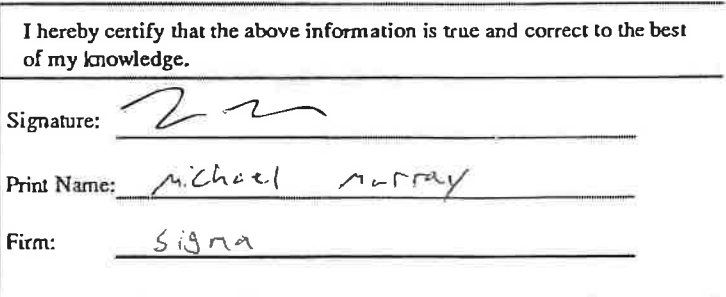 I hereby certify that the above information is true and correct to the best
of my knowledge.
Signature:
Print Name: Michael Murray
Firm: Sigma